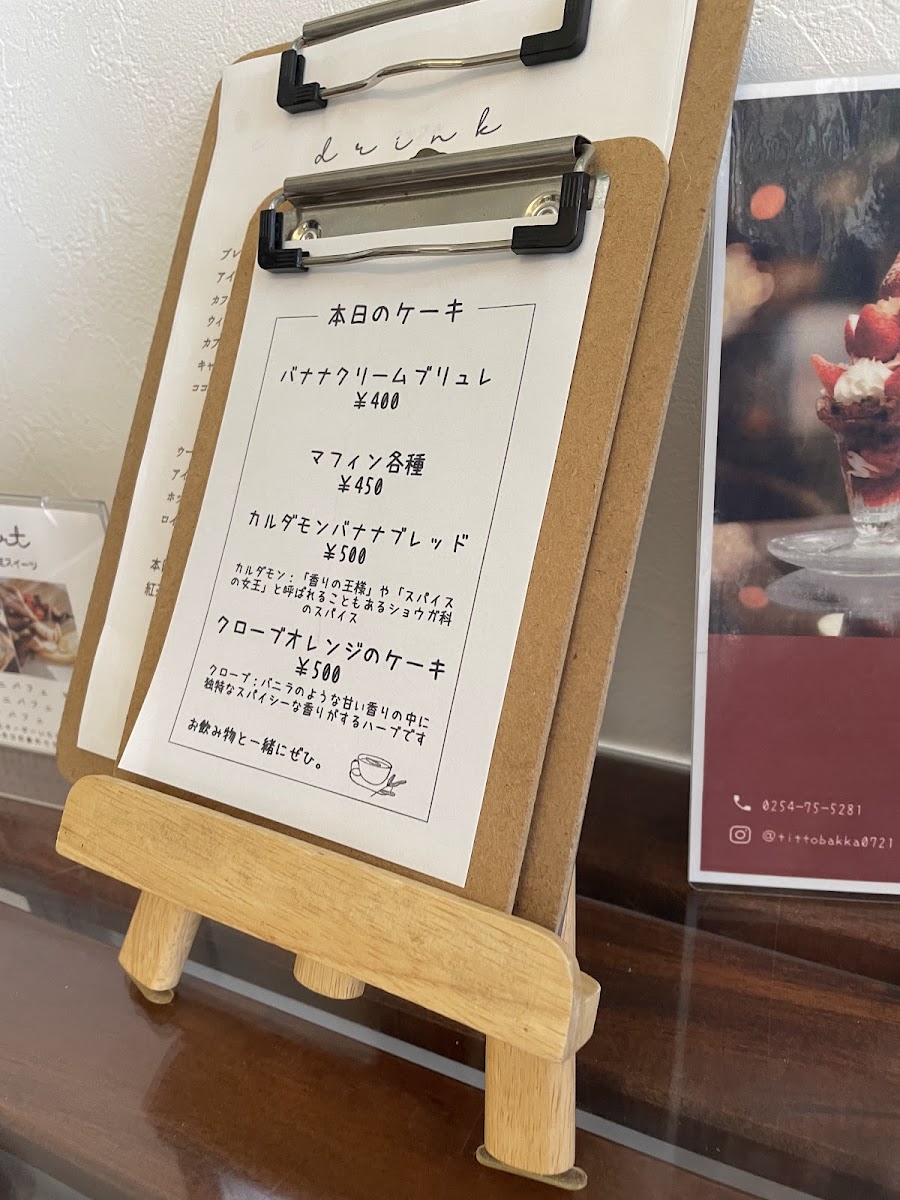 drink
本日のケーキ
バナナクリームブリュレ
¥400
マフィン各種
¥450
カルダモンバナナブレッド
¥500
カルダモン:「香りの王様」や「スパイス
の女王」と呼ばれることもあるショウガ科
のスパイス
クローブオレンジのケーキ
¥500
クローブ:バニラのような甘い香りの中に
独特なスパイシーな香りがするハーブです
お飲み物と一緒にぜひ。
ブレ
アイ
カフ
ウイ
カフ
キャ
ココ
ウー
アイ
ホッ
ロイ
0254-75-5281
@tittobakka0721